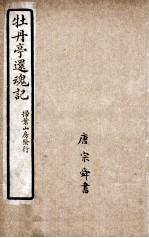 牡丹亭還魂記
掃葉山房發行
唐宗舜書